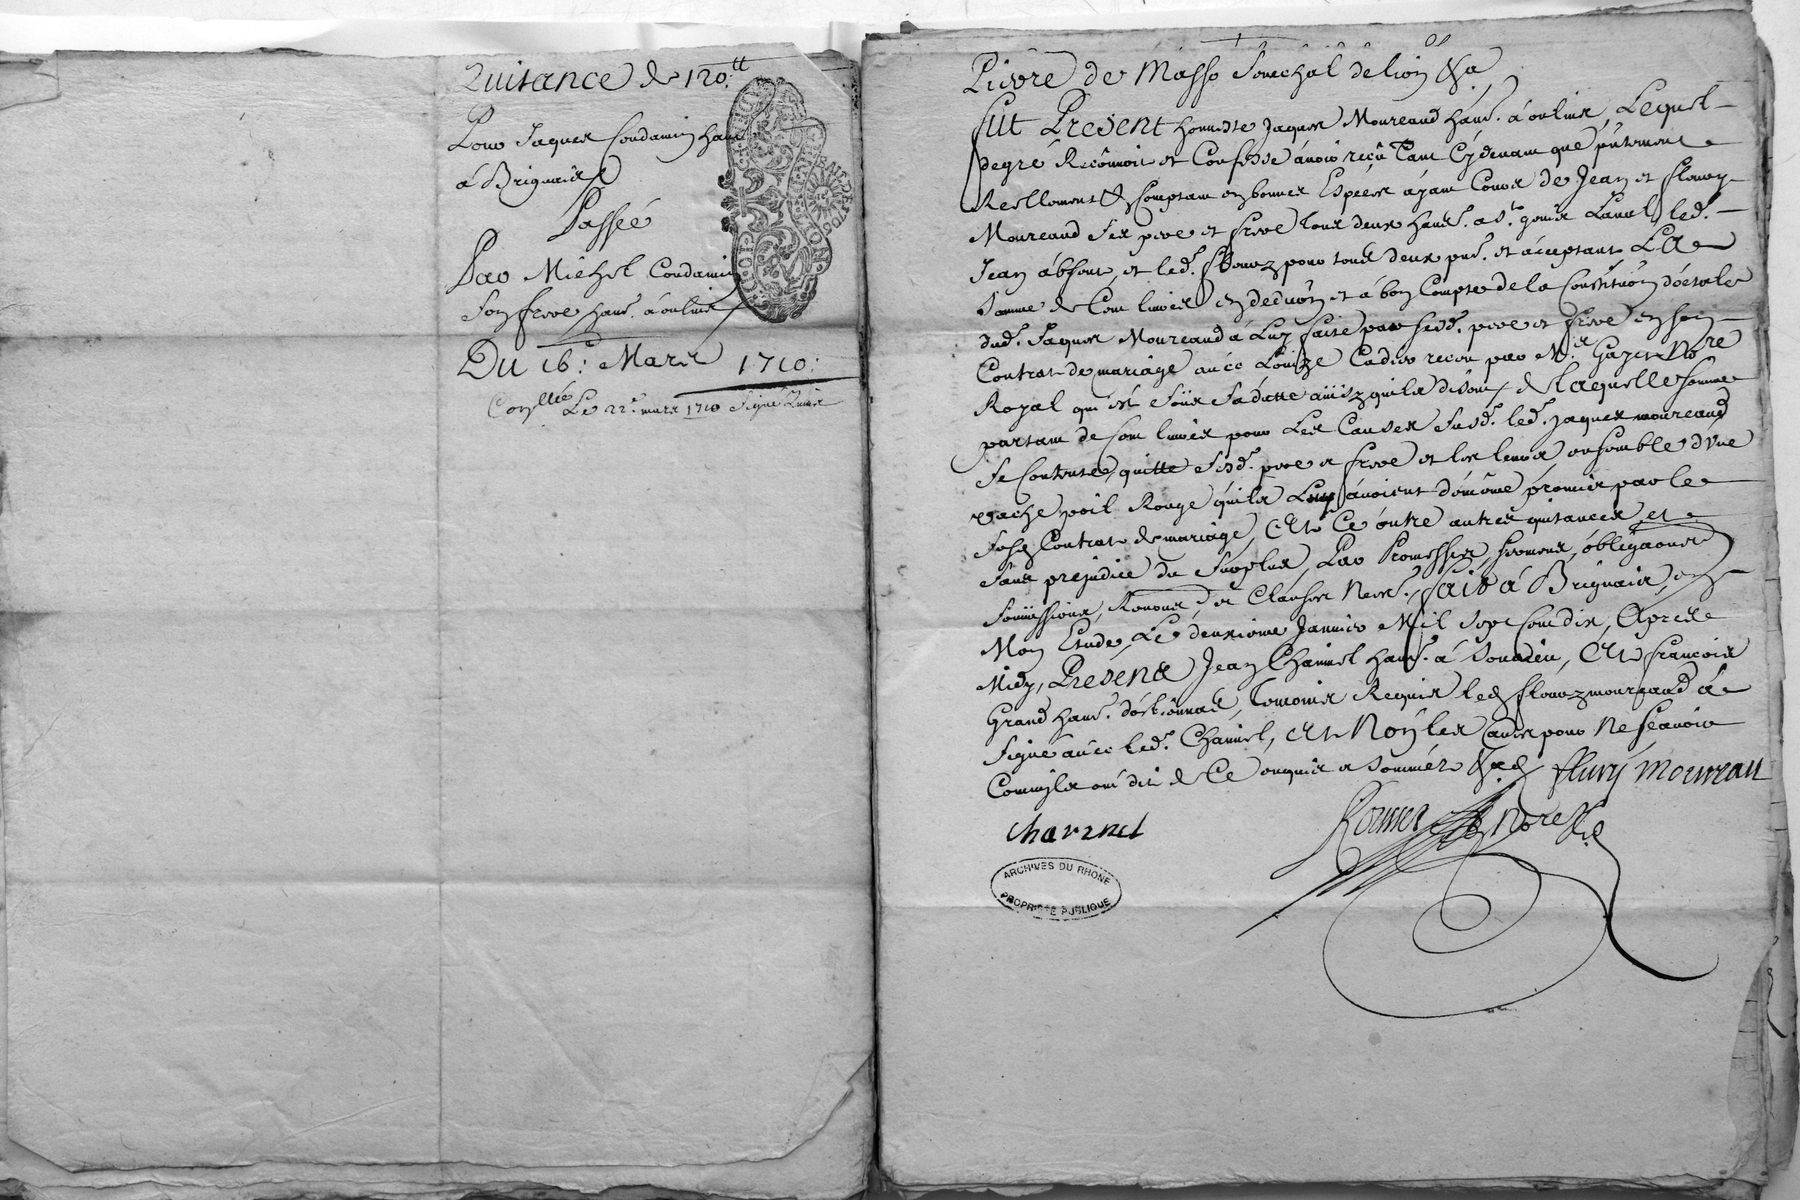 Quitance de 120.tt
Pour Jaques Condamin hant
à Brignais
Passée
Par Michel Condamin
son frere hant. à oulins
Du 16: Mars 1710:
Conllée Le 22e mars 1710 Signé
GEN DE LYON
Pierre de Masso Senechal de lion &a
Fut Present honneste Jaques Moureaud hant. à oulins, Lequel
degré Reconnoit et Confesse avoir reçû Tant Cydevant que pntement
Reellement & Comptant en bonnes Especes ayant Cours de Jean et fleury
Moureaud ses pere et frere tous deux hants. a St. genis Laual, led.
Jean absent, et led. fleury pour tous deux pnt. et acceptant La
somme de Cent livres en deduôn et à bon Compte de la Constituôn dôctale
dud. Jaques Moureaud à Luy faite par sesd. pere et frere en son
Contrat de mariage avec Louize Cadier receu par Me. Gayet Nore
Royal qui est sous sa datte ainsy quils disent, de laquelle somme
partant de Cent livres pour Les Causes susd. led. jaques moureaud
se Contente, quitte sesd. pere et frere et les tenir ensemble d'vne
vache poil Rouge quils Luy avoient de même promis par le
susd Contrat de mariage, Et Ce outre autres quitances et
sans prejudice du surplus, Par Promesses, sermens, obligaons
soumissions, Renons, et Clauses Ness. fait à Brignais, en
Mon Etude, Le deuxieme Janvier Mil Sept Cent dix, Apres
Midy, Presens Jean Charvet hant. à Soucieu, Et francois
Grand hant. dôrlienas, temoins Requis led fleury moureaud à
signé avec led. Charvet, Et Non les autres pour Ne sçavoir
Comme ils ont dit de Ce enquis et sommés &ed fleury Moureau
charvet
Nore
ARCHIVES DU RHONE
PROPRIÉTÉ PUBLIQUE